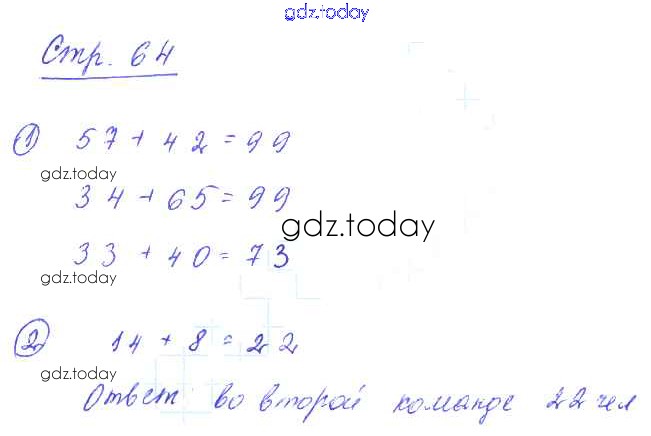 gdz.today
Стр. 64
① 57 + 42 = 99
gdz.today
34 + 65 = 99
gdz.today
33 + 40 = 73
gdz.today
② 14 + 8 = 22
gdz.today
Ответ: во второй команде 22 чел